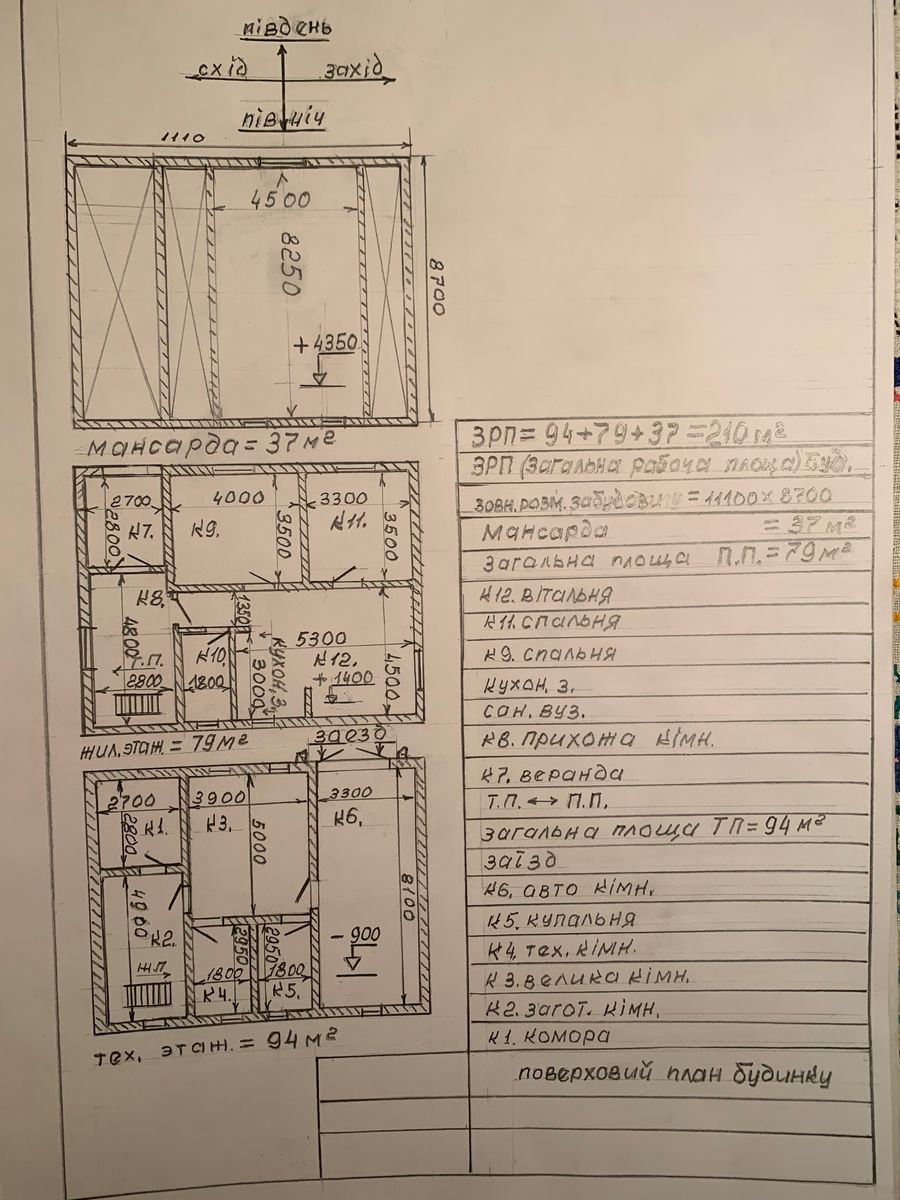 південь
схід
захід
північ
1110
4500
8250
8700
+4350
мансарда = 37 м²
2700
2800
К7.
4000
К9.
3500
3300
К11.
3500
К8.
4800
Т.П.
2800
1350
К10
1800
3000
кухон.з,
5300
К12.
+1400
4500
жил.этаж. = 79 м²
за030
2700
2800
К1.
3900
К3.
5000
3300
К6.
8100
4900
К2.
ж.п
2950
2950
1800
К4.
1800
К5.
-900
тех. этаж. = 94 м²
ЗРП = 94+79+37 = 210 м²
ЗРП (Загальна рабоча площа) буд.
зовн. розм. забудовини = 11100 х 8700
Мансарда = 37 м²
Загальна площа П.П. = 79 м²
К12. вітальня
К11. спальня
К9. спальня
кухон. з.
сан. вуз.
К8. прихожа кімн.
К7. веранда
Т.П. ↔ П.П.
загальна площа ТП = 94 м²
заїзд
К6. авто кімн.
К5. купальня
К4. тех. кімн.
К3. велика кімн.
К2. загот. кімн.
К1. комора
поверховий план будинку